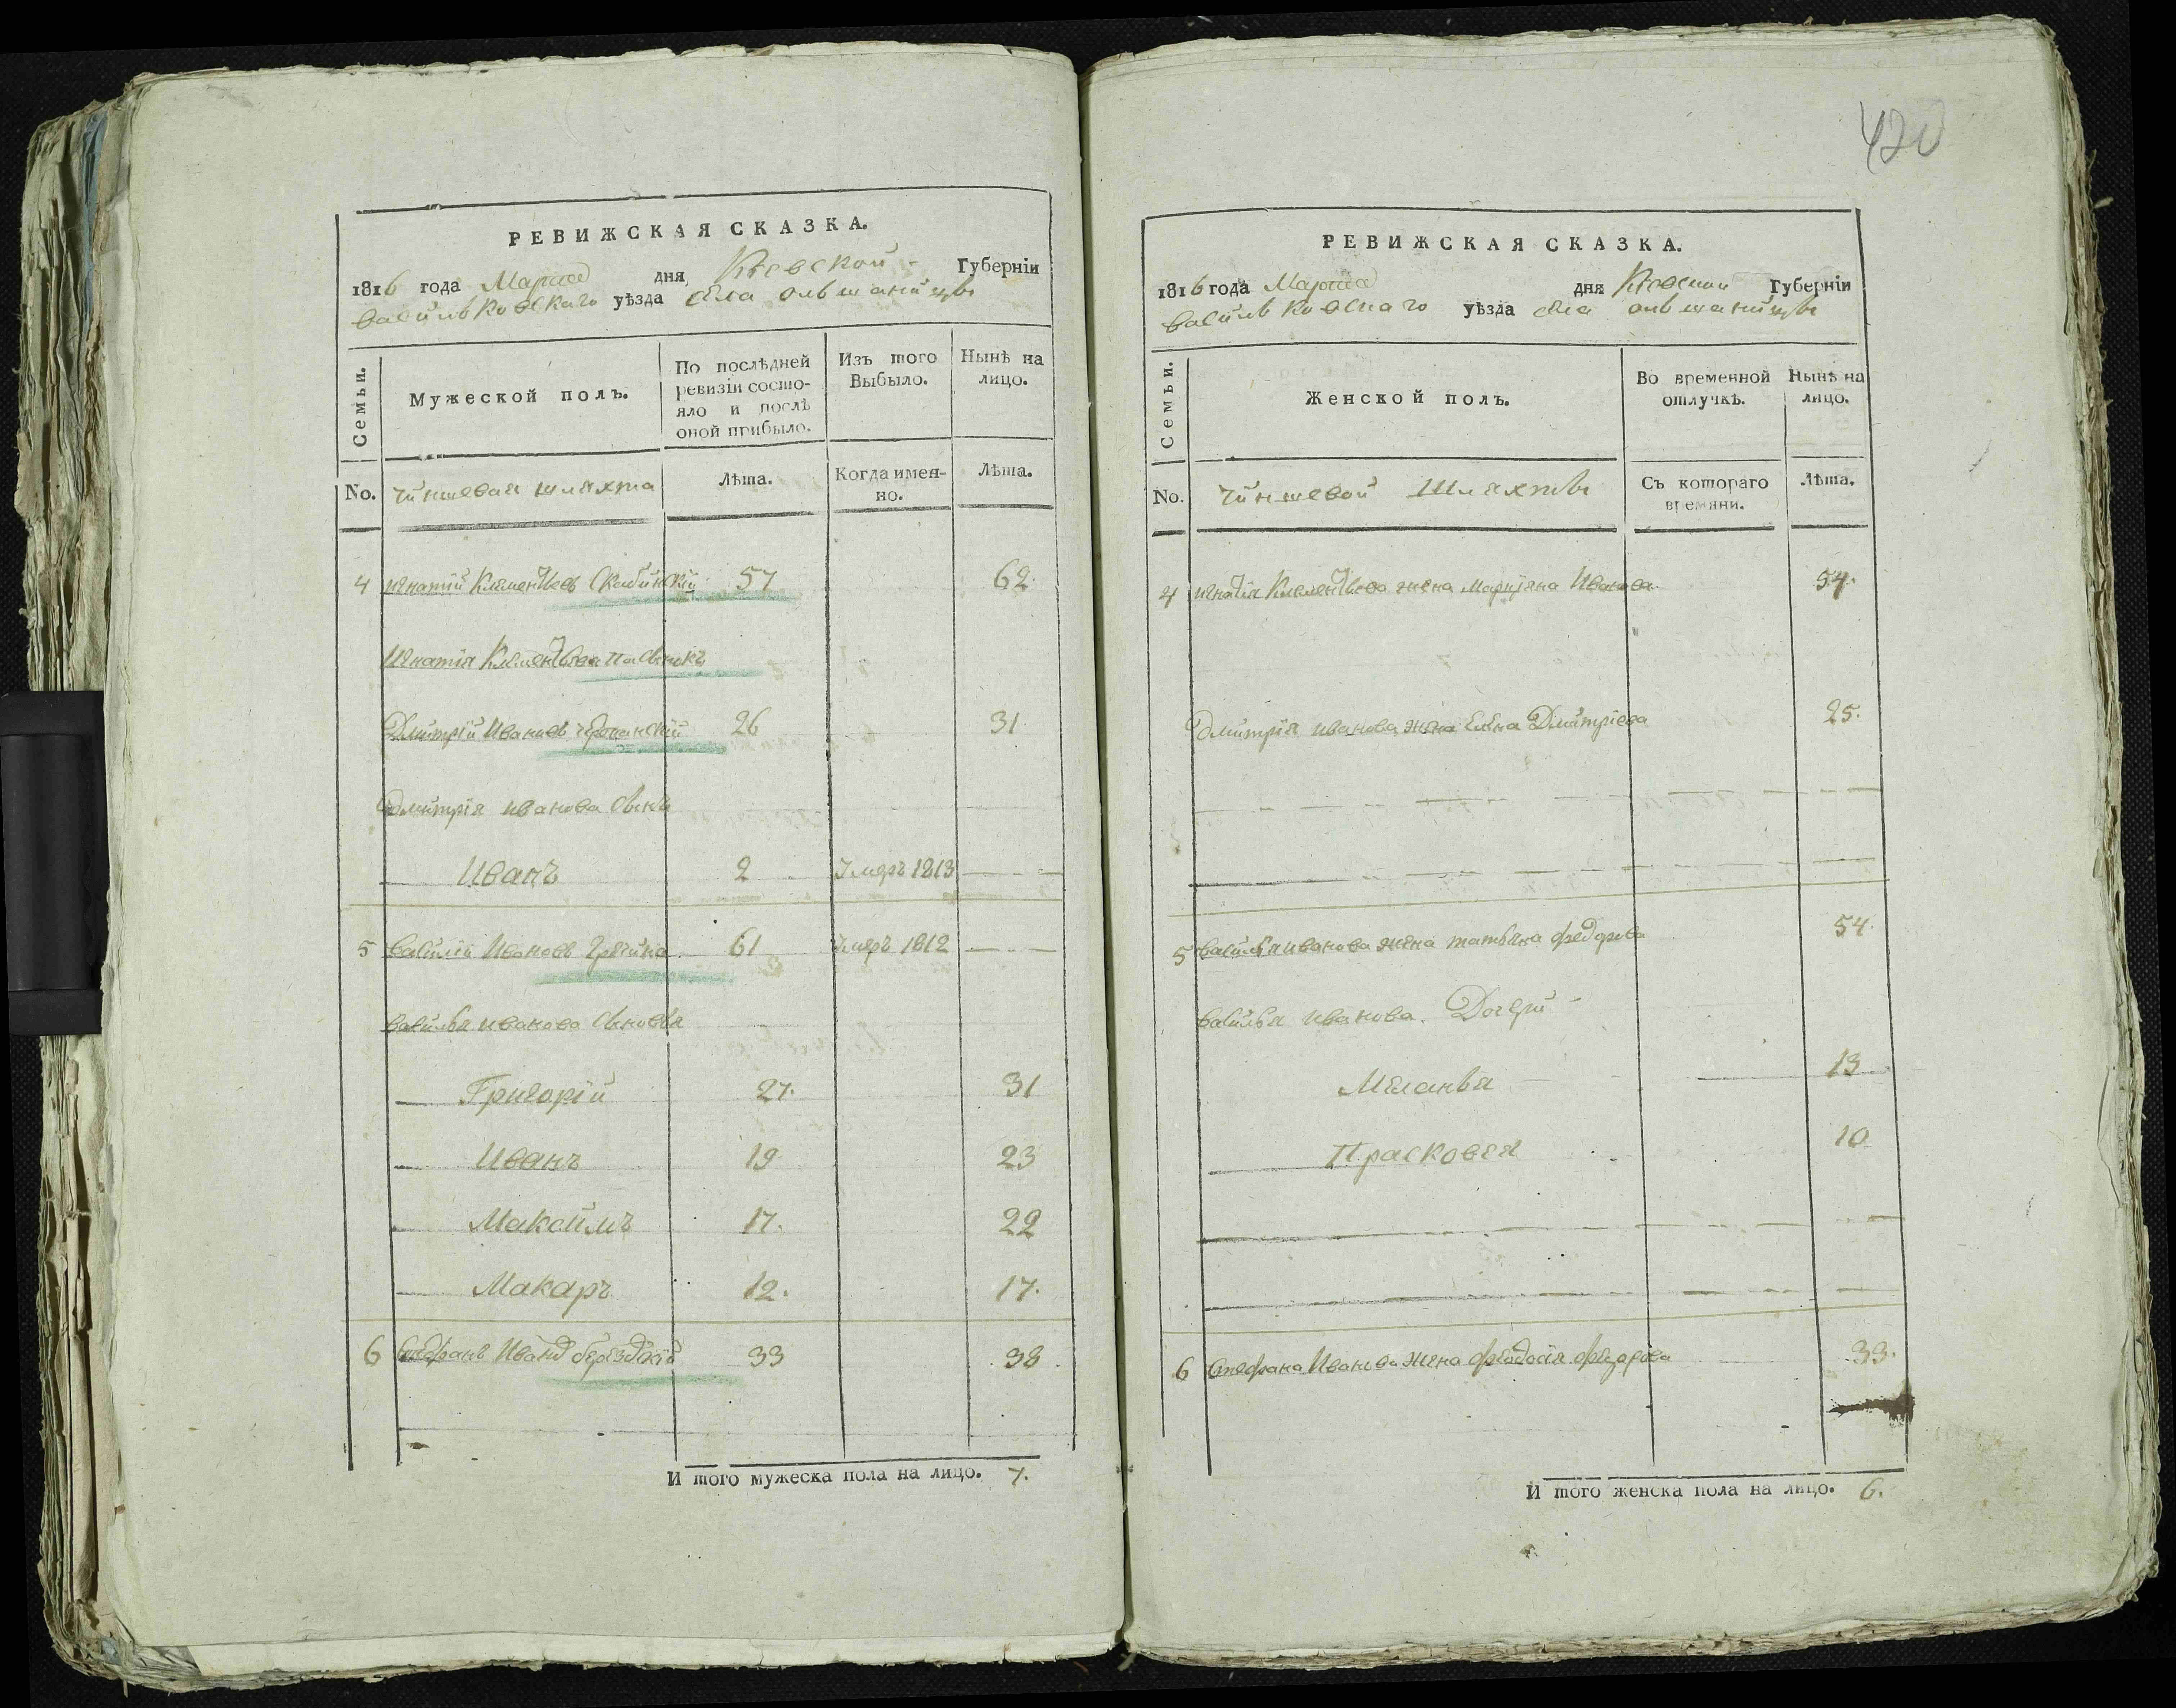 РЕВИЖСКАЯ СКАЗКА.
1816 года Марта дня Кіевской Губерніи
васильковскаго уѣзда села ольшаницы
Семьи.
Мужеской полъ.
По послѣдней ревизіи состояло и послѣ оной прибыло.
Изъ того Выбыло.
Нынѣ на лицо.
No.
чиншевая шляхта
Лѣта.
Когда именно.
Лѣта.
4 игнатій Клементьевъ 57 62
Игнатія Клементьева пасынокъ
Дмитрій Ивановъ 26 31
Дмитрія иванова сынъ
Иванъ 2 Умеръ 1813
5 василій Ивановъ Гречина 61 умеръ 1812
василья иванова сыновья
Григорій 27. 31
Иванъ 19 23
Максимъ 17. 22
Макаръ 12. 17.
6 Стефанъ Иванъ 33 38
И того мужеска пола на лицо. 7.
420
РЕВИЖСКАЯ СКАЗКА.
1816 года Марта дня Кіевской Губерніи
васильковскаго уѣзда села ольшаницы
Семьи.
Женской полъ.
Во временной отлучкѣ.
Нынѣ на лицо.
No.
чиншевой шляхты
Съ котораго времяни.
Лѣта.
4 игнатія Клементьева жена Марціяна Иванова 54.
Дмитрія иванова жена Елена Дмитріева 25.
5 василья иванова жена татьяна федорова 54.
василья иванова. Дочери
Меланья 13
Прасковея 10
6 Стефана Иванова жена феодосія федорова 33.
И того женска пола на лицо. 6.